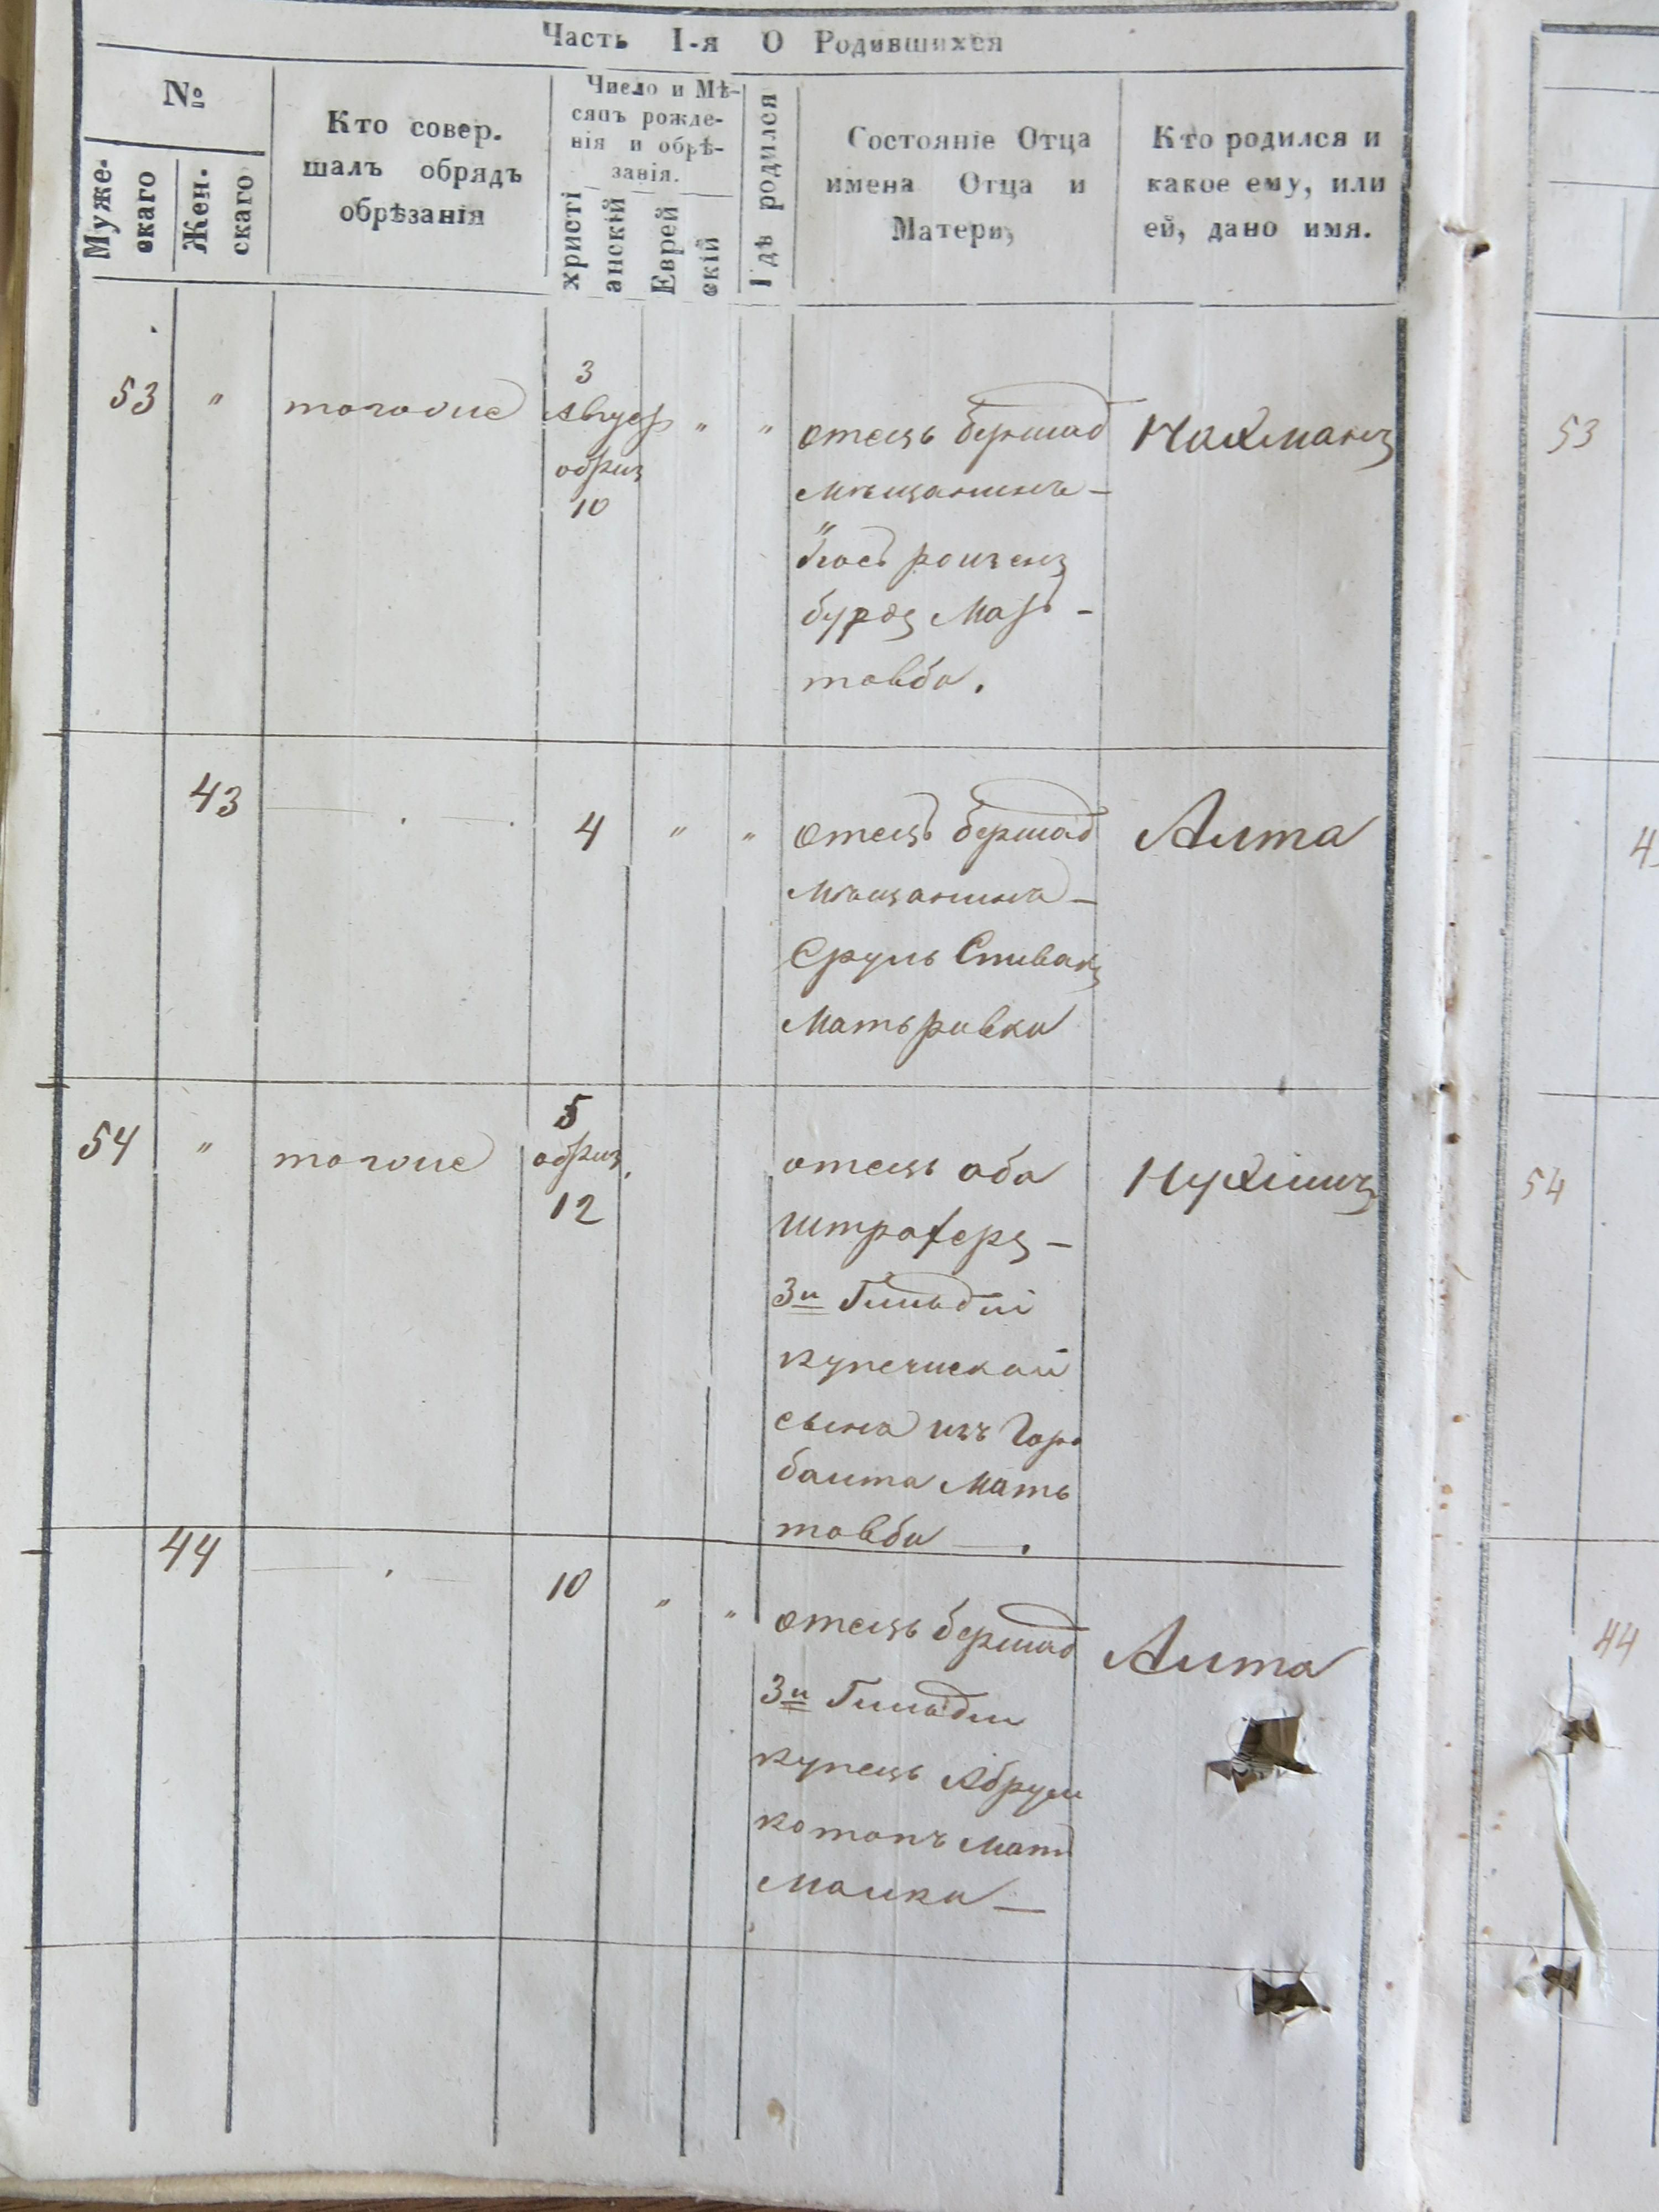 Часть I-я О Родившихся
№
Муже-
скаго
Жен.
скаго
Кто совер.
шалъ обрядъ
обрѣзанія
Число и Мѣ-
сяцъ рожде-
нія и обрѣ-
занія.
христі
анскій
Еврей
скій
Гдѣ родился
Состояніе Отца
имена Отца и
Матери,
Кто родился и
какое ему, или
ей, дано имя.
53 "
3
Август
обриз
10
" "
отецъ бершад
мѣщанинъ -
Іось ройзен
бурдъ Мать -
товба.
Нахманъ
53
43
4 " "
отецъ бершад
мѣщанинъ -
Сруль Спивакъ
Мать ривка
Алта
54 "
5
обриз.
12
отецъ аба
штраферъ -
3й Гильдіи
купечиской
сынъ изъ
балта Мать
товба .
Нухимъ
54
44
10 " "
отецъ бершад
3й Гильдии
купецъ Абрум
котонъ Мать
Малка
Алта
44